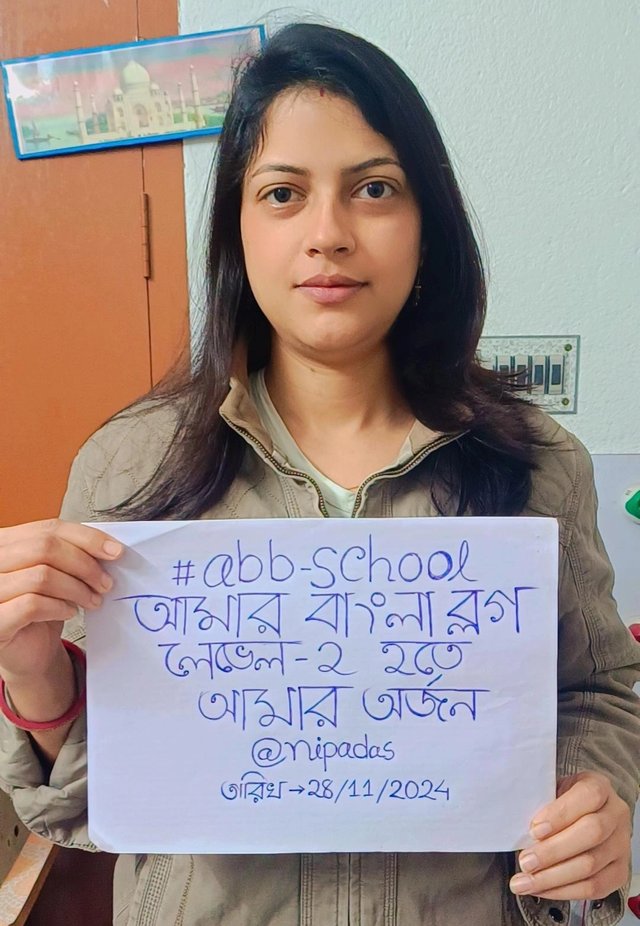 #abb-school
আমার বাংলা ব্লগ
লেভেল-২ হতে
আমার অর্জন
@nipadas
তারিখ→28/11/2024